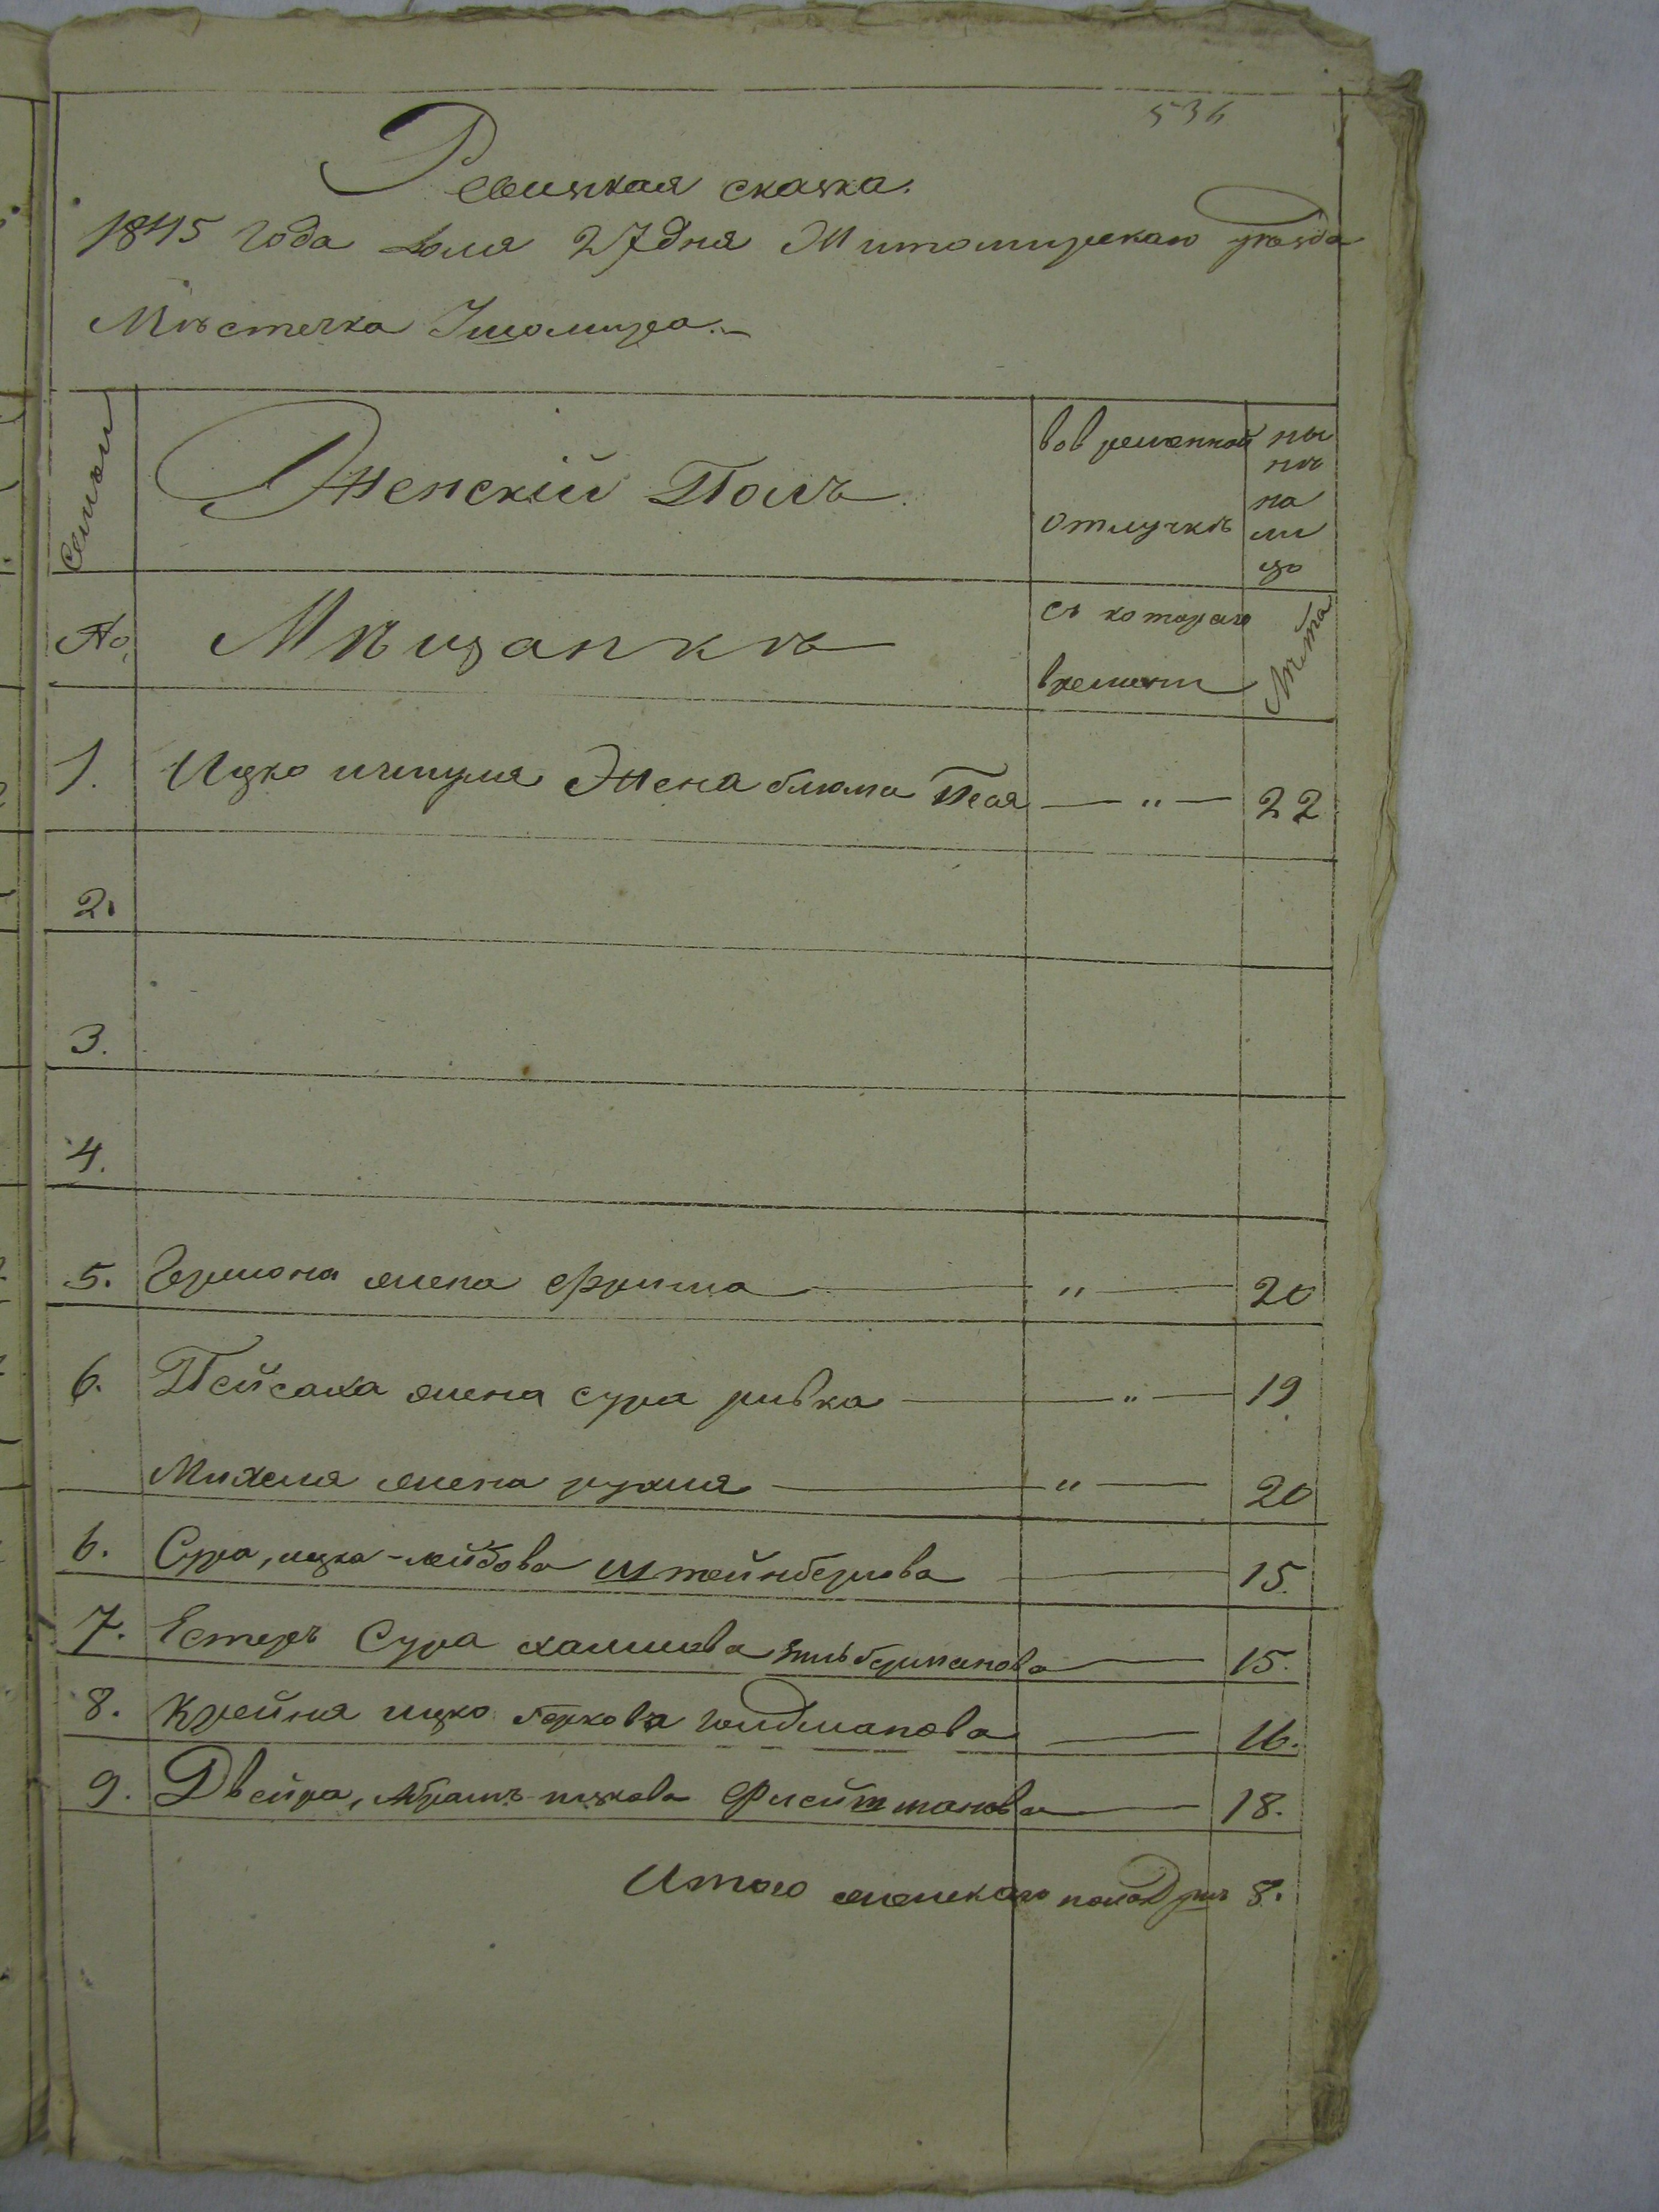 536
Ревизкая сказка.
1845 года Юля 27 дня Житомирскаго уѣзда
Мѣстечка Ушомира.
Семьи
Женскій Полъ
вовременной отлучкѣ
ныне на лицо
№
Мѣщанкѣ
съ котораго времени
Лѣта
1. Ицко жена блюма Песя — " — 22
2.
3.
4.
5. жена фрима — " — 20
6. Пейсаха жена сура ривка — " — 19
Михеля жена рухля — " — 20
6. Сура, ицка-лейбова Штейнбергова — 15.
7. Естеръ Сура хаимова Зильбермановa — 15.
8. Крейна ицко беркова голдманова — 16.
9. Двейра, Абрамъ-ицкова Флейтманова — 18.
Итого женскаго пола 8.